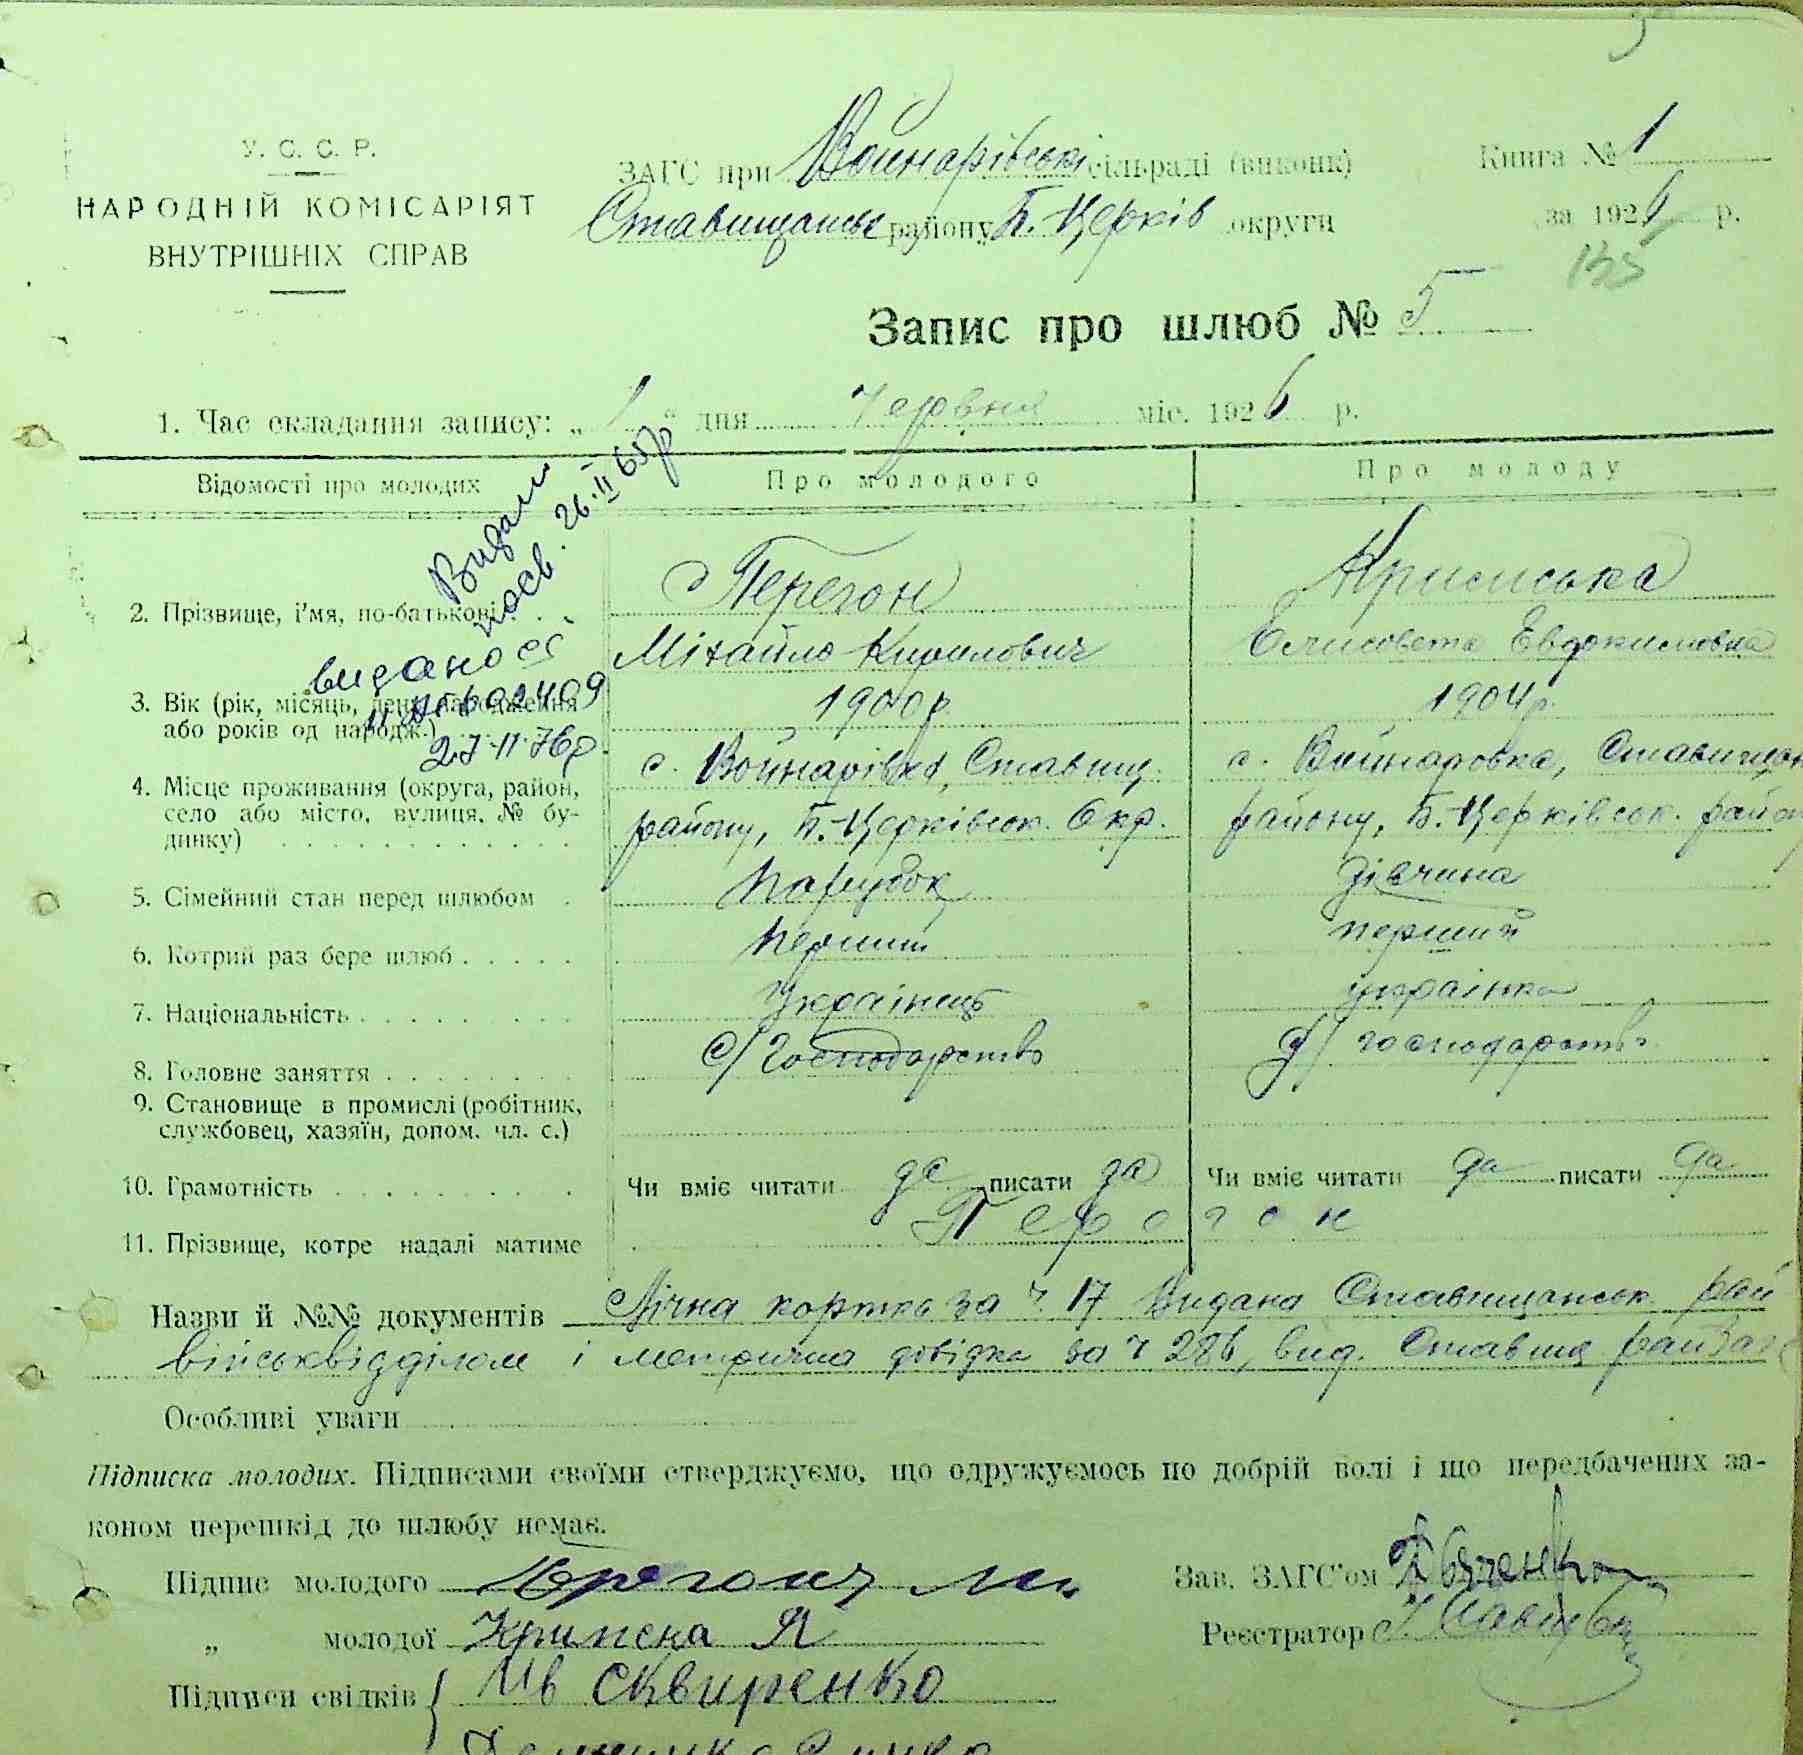 У. С. С. Р.
НАРОДНІЙ КОМІСАРІЯТ
ВНУТРІШНІХ СПРАВ
ЗАГС при Войнарівські сільраді (виконк)
Ставищанськ району Б. Церків округи
Книга № 1
за 1926 р.
Запис про шлюб № 5
1. Час складання запису: „1“ дня Червня міс. 1926 р.
Відомості про молодих Про молодого Про молоду
Видали посв. 26.II 65р
видано
27.II.76р
2. Прізвище, і'мя, по-батькові . . Перегон
Михайло Кирилович Елисовета Евдокимовна
3. Вік (рік, місяць, день народження або років од народж.) 1900р. 1904р.
4. Місце проживання (округа, район, с. Войнарівка, Ставищ. с. Войнаровка, Ставищан
село або місто, вулиця, № бу- району, Б.-Церківськ. Окр. району, Б.-Церківськ. район
динку) . . . . . . . . . . . .
5. Сімейний стан перед шлюбом . Парубок Дівчина
6. Котрий раз бере шлюб . . . . . Перший перший
7. Національність . . . . . . . . Українець українка
8. Головне заняття . . . . . . . . С/господарство С/господарство
9. Становище в промислі (робітник,
службовец, хазяїн, допом. чл. с.)
10. Грамотність . . . . . . . . . Чи вміє читати да писати да Чи вміє читати да писати да
11. Прізвище, котре надалі матиме Перегон
Назви й №№ документів Лічна картка за ч. 17 Видана Ставищанськ. рай
військвідділом і метрична довідка за ч 286, вид. Ставищ райЗаг
Особливі уваги
Підписка молодих. Підписами своїми стверджуємо, що одружуємось по добрій волі і що передбачених за-
коном перешкід до шлюбу немає.
Підпис молодого Зав. ЗАГС'ом
„ молодої Реєстратор
Підписи свідків { Ив Сквиренко